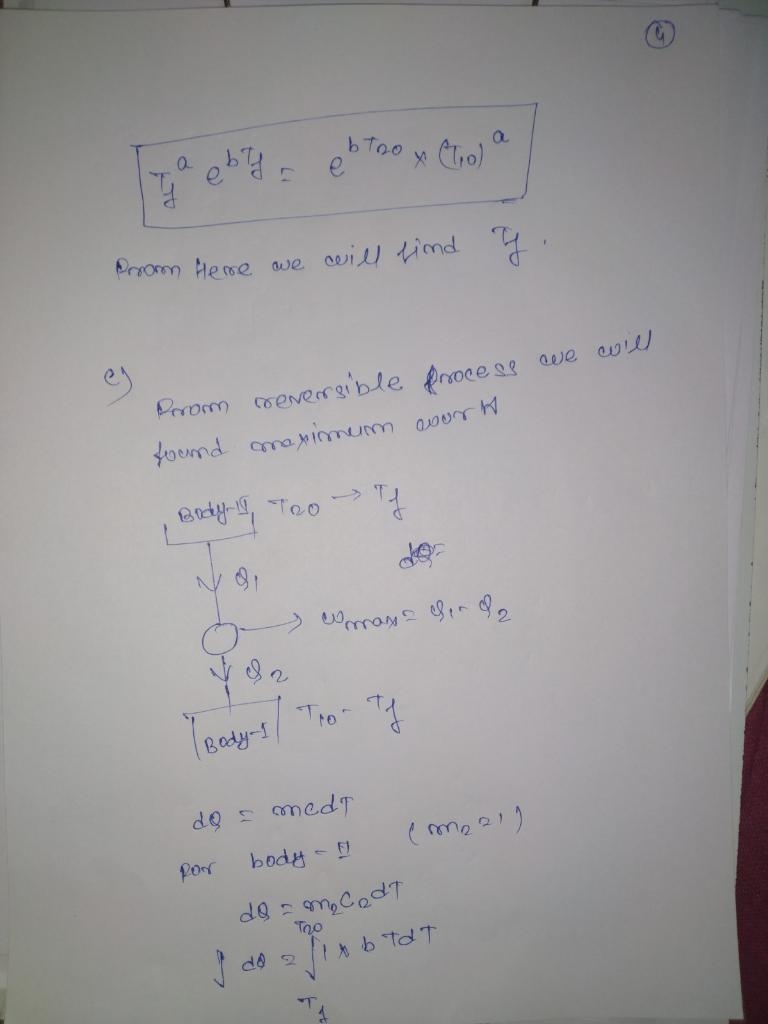 4
T_f^a e^{bT_f} = e^{bT_{20}} × (T_{10})^a
From Here we will find T_f.
c)
From reversible process we will
found maximum work
Body-II T_{20} → T_f
dQ=
Q_1
W_{max} = Q_1 - Q_2
Q_2
Body-I T_{10} - T_f
dQ = mcdT
For body-II (m_2 = 1)
dQ = m_2 C_2 dT
∫ dQ = ∫_{T_f}^{T_{20}} 1 × b T dT